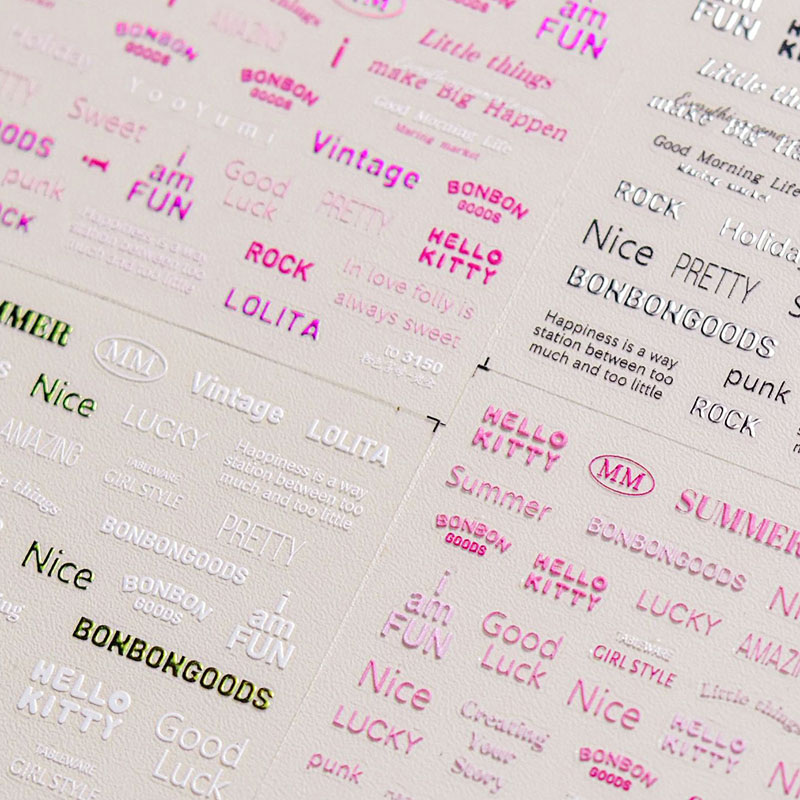 i
am
FUN
MM
things
AMAZING
Holiday
BONBON
GOODS
BONBON
GOODS
i
Little things
make Big Happen
Good Morning Life
Maring market
YooYumi
Sweet
Vintage
BONBON
GOODS
i
am
FUN
Good
Luck
PRETTY
punk
HELLO
KITTY
ROCK
In love folly is
always sweet
LOLITA
to 3150
am
FUN
Little
make Big
Good Morning Life
ROCK
Holiday
Nice
PRETTY
BONBONGOODS
Happiness is a way
station between too
much and too little
punk
ROCK
MM
Vintage
LOLITA
Nice
LUCKY
Happiness is a way
station between too
much and too little
AMAZING
TABLEWARE
GIRL STYLE
things
BONBONGOODS
PRETTY
Nice
BONBON
GOODS
i
am
FUN
BONBONGOODS
HELLO
KITTY
Good
Luck
TABLEWARE
GIRL STYLE
HELLO
KITTY
MM
SUMMER
Summer
BONBONGOODS
BONBON
GOODS
HELLO
KITTY
LUCKY
i
am
FUN
Good
Luck
TABLEWARE
GIRL STYLE
Little things
Nice
Nice
HELLO
KITTY
LUCKY
Creating
Your
Story
BONBON
GOODS
punk